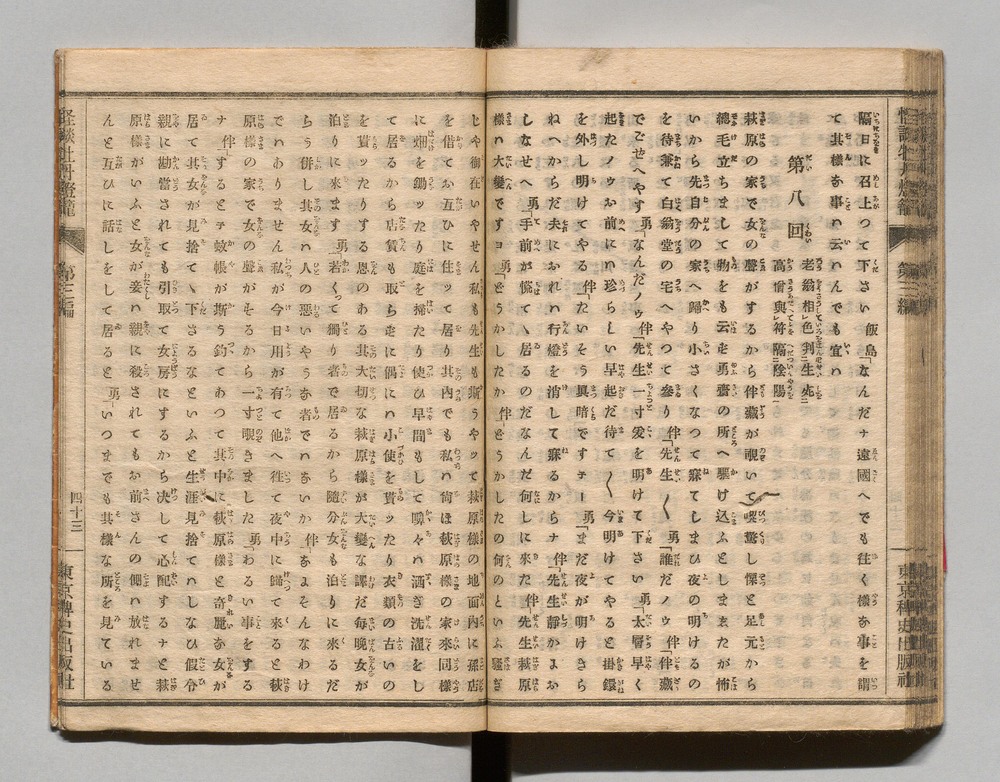 隔日に召上つて下さい 飯島「なんだナ遠國へでも往く樣な事を謂
て其樣な事ハ云ハんでも宜ハ
第八回
老翁相色判生死
高僧與符隔陰陽
萩原の家で女の聲がするから伴藏が覗いて喫驚し慄と足元から
總毛立ちまして物をも云ず勇齋の所へ驅け込ふとしましたが怖
いから先自分の家へ歸り小さくなつて寐てしまひ夜の明けるの
を待兼て白翁堂の宅へやつて參り 伴「先生〱 勇「誰だノウ 伴「伴藏
でごぜへやす 勇「なんだノウ 伴「先生一寸爰を明けて下さい 勇「大層早く
起たノウお前にハ珍らしい早起だ待て〱今明けてやると掛鐶
を外し明けてやる 伴「たいそう眞暗ですナー 勇「まだ夜が明けきら
ねへからだ夫におれハ行燈を消して寐るからナ 伴「先生靜かにお
しなせへ 勇「手前が慌てゝ居るのだなんだ何しに來た 伴「先生萩原
樣ハ大變ですヨ 勇「どうかしたか 伴「どうかしたの何のといふ騷ぎ
じや御在いやせん私も先生も斯うやつて萩原樣の地面內に孫店
を借てお互ひに住ツて居り其內でも私ハ尚ほ萩原樣の家來同樣
に畑を鋤ツたり庭を掃たり使ひ早間もして嚊々ハ洒ぎ洗濯をし
て居るから店賃も取らずに偶にハ小使を貰ツたり衣類の古いの
を貰ツたりする恩のある其大切な萩原樣が大變な譯だ每晚女が
泊りに來ます 勇「若くつて獨り者で居るから隨分女も泊りに來るだ
らう併し其女ハ人の惡いやうな者でハないか 伴「なにそんなわけ
でハありません私が今日用が有て他へ往て夜中に歸て來ると萩
原樣の家で女の聲がするから一寸覗きました 勇「わるい事をする
ナ 伴「するとテ蚊帳が斯う釣てあつて其中に萩原樣と奇麗な女が
居て其女が見捨てゝ下さるなといふと生涯見捨てハしない假令
親に勘當されても引取て女房にするから决して心配するナと萩
原樣がいふと女が妾ハ親に殺されてもお前さんの側ハ放れませ
んと互ひに話しをして居ると 勇「いつまでも其樣な所を見てゐる
怪談牡丹燈籠
第三編
四十三
東京稗史出版社